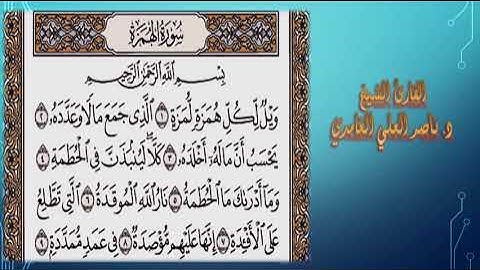 سُورَةُ الهُمَزَةِ
بِسْمِ ٱللَّهِ ٱلرَّحْمَٰنِ ٱلرَّحِيمِ
وَيْلٌ لِّكُلِّ هُمَزَةٍ لُّمَزَةٍ ١ ٱلَّذِى جَمَعَ مَالًا وَعَدَّدَهُۥ ٢
يَحْسَبُ أَنَّ مَالَهُۥٓ أَخْلَدَهُۥ ٣ كَلَّا لَيُنۢبَذَنَّ فِى ٱلْحُطَمَةِ ٤
وَمَآ أَدْرَىٰكَ مَا ٱلْحُطَمَةُ ٥ نَارُ ٱللَّهِ ٱلْمُوقَدَةُ ٦ ٱلَّتِى تَطَّلِعُ
عَلَى ٱلْأَفْـِٔدَةِ ٧ إِنَّهَا عَلَيْهِم مُّؤْصَدَةٌ ٨ فِى عَمَدٍ مُّمَدَّدَةٍۭ ٩
القارئ الشيخ
د. ناصر العلي الغامدي